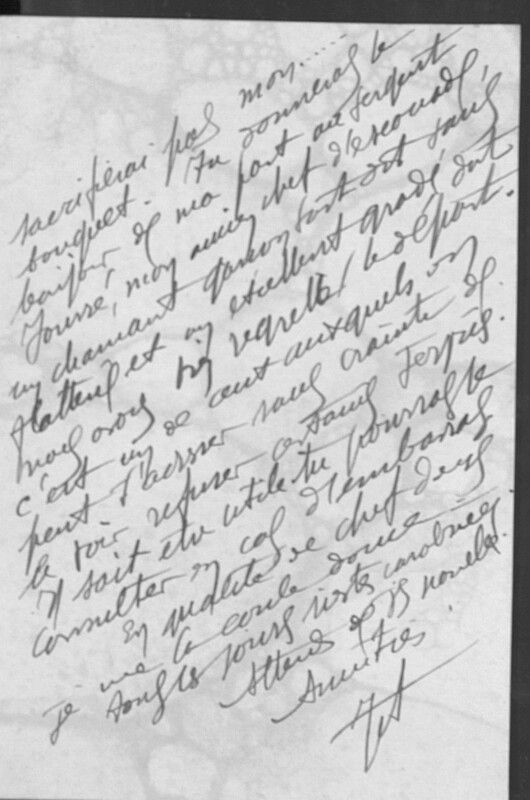 sacrifierai pas mon.....
bouquet. Tu donneras le
bonjour de ma part au sergent
Jourré, mon ancien chef d'escouade,
un charmant garçon soit dit sans
flatterie et un excellent gradé dont
nous avons regretté le départ.
c'est un de ceux auxquels on
peut s'adresser sans crainte de
le voir refuser certains
Il sait être utile tu pourras le
consulter en cas d'embarras
En qualité de chef de
je me la coule douce
tous les jours
Attends de tes nouvelles.
Amitiés.